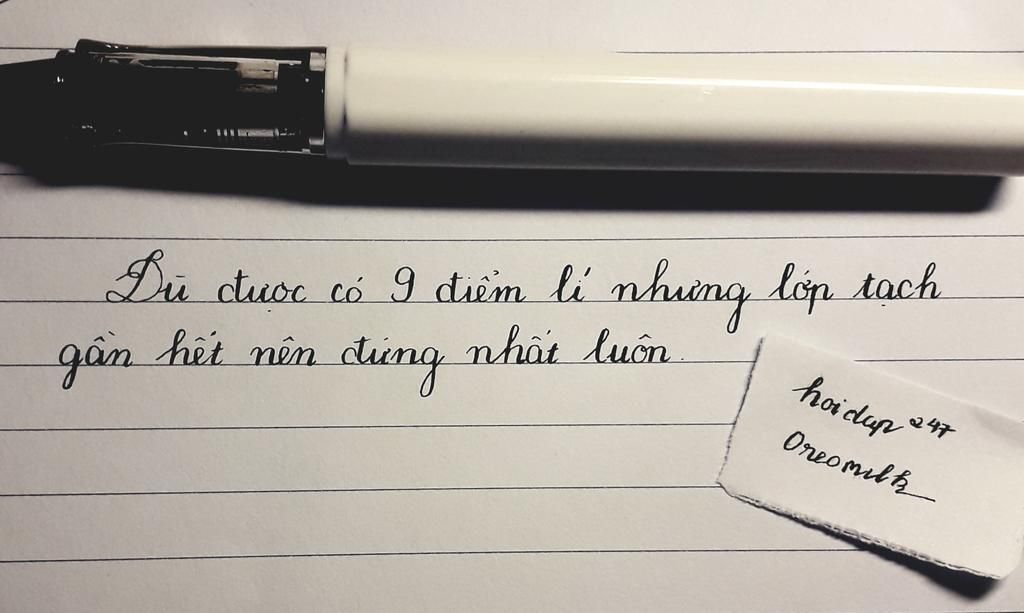 Dù được có 9 điểm lí nhưng lớp tạch
gần hết nên đứng nhất luôn.
hoidap 247
Oreomilk